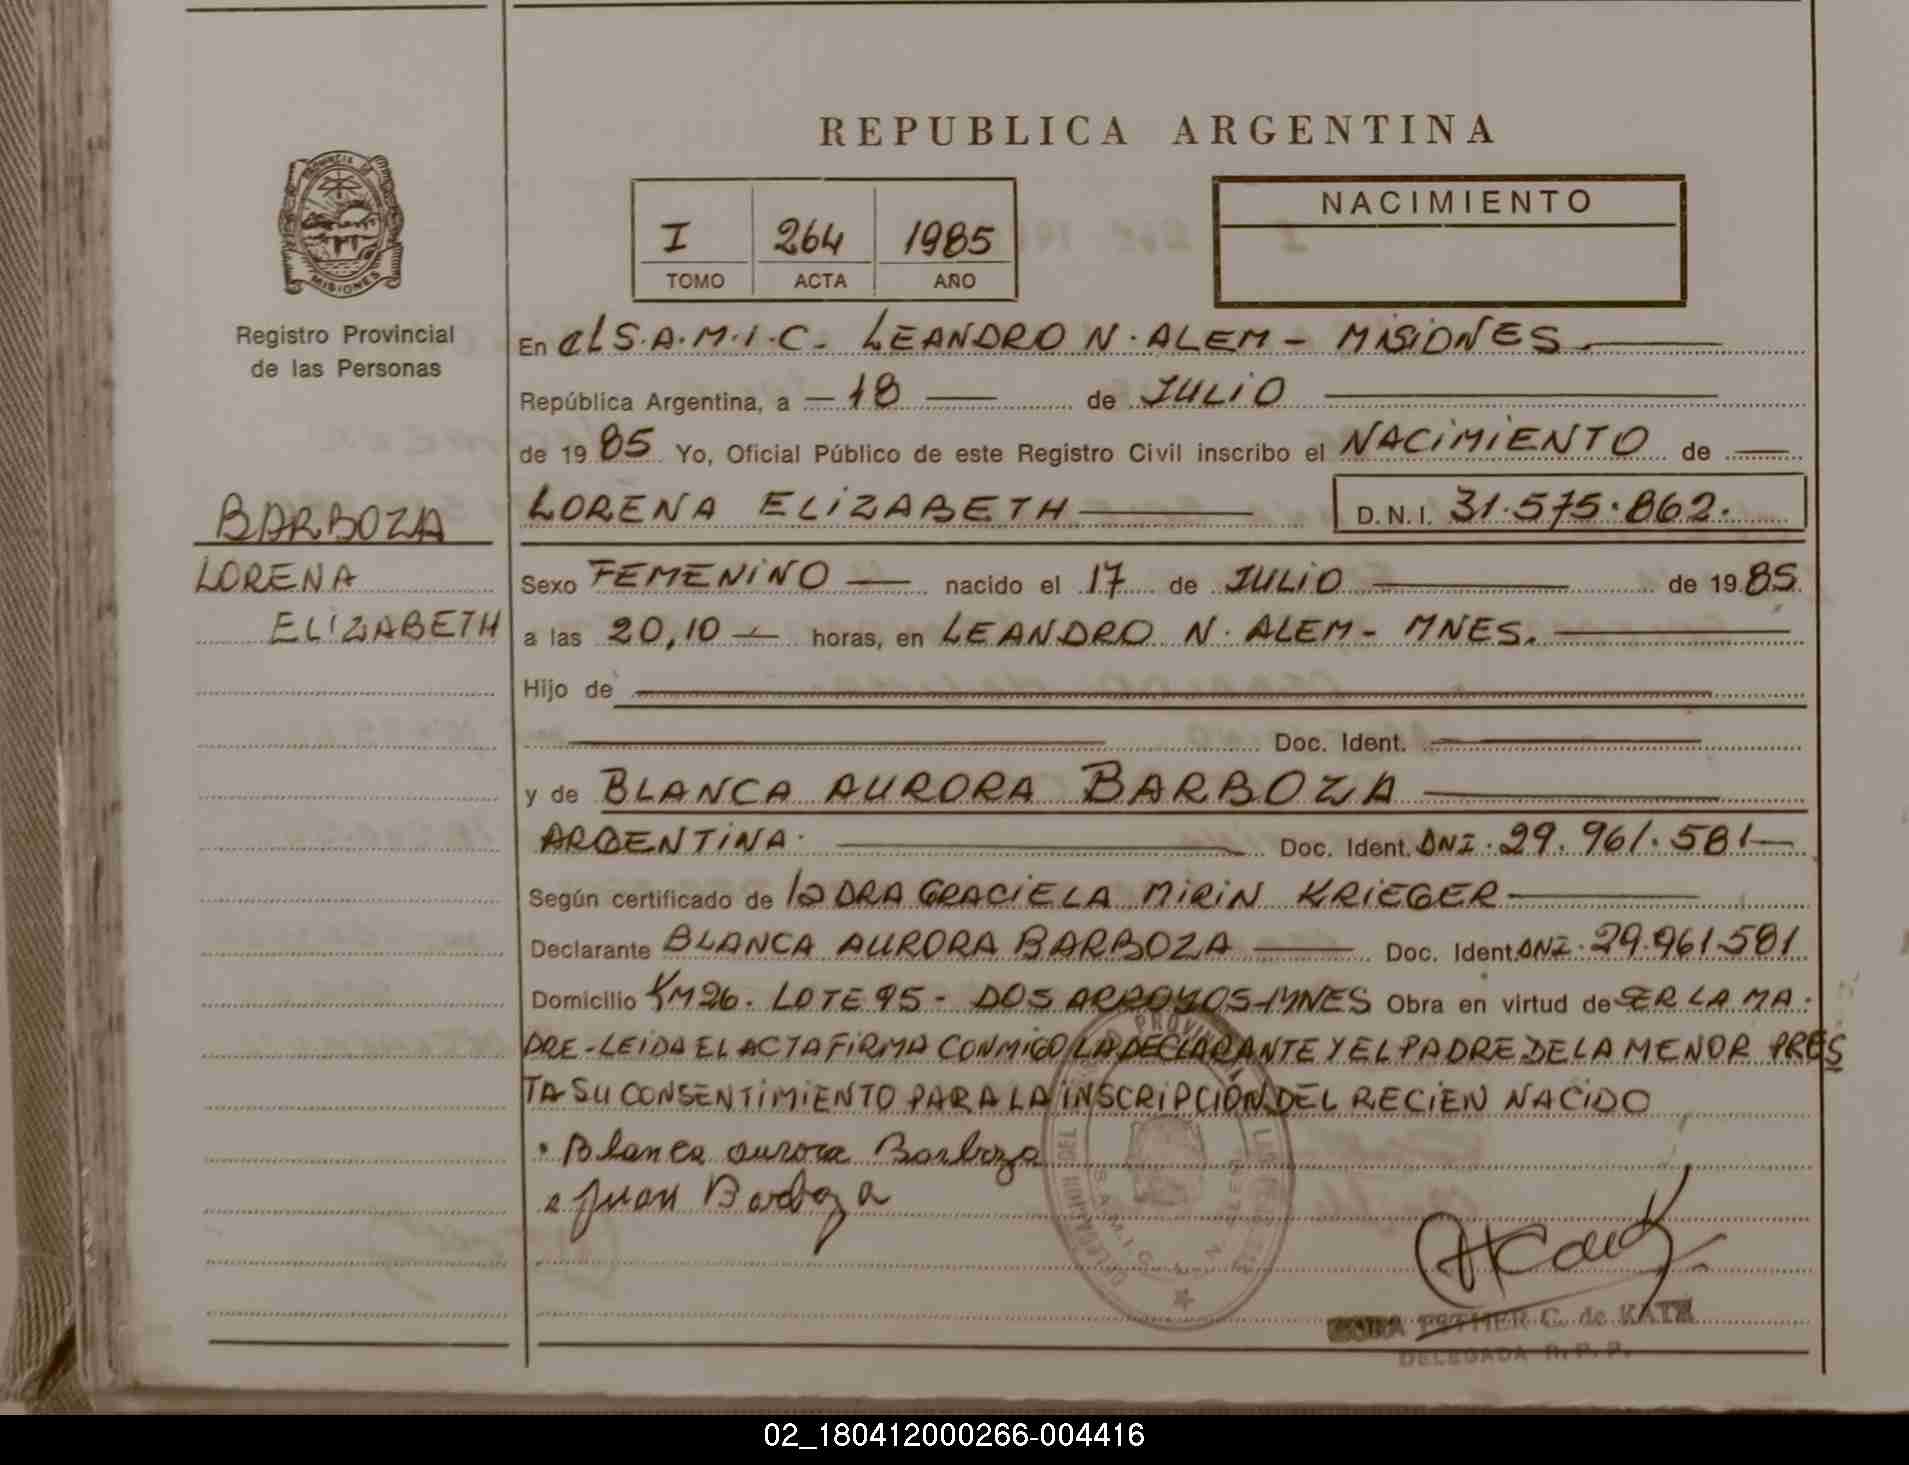 REPUBLICA ARGENTINA
PROVINCIA DE
MISIONES
Registro Provincial
de las Personas
I 264 1985
TOMO ACTA AÑO
NACIMIENTO
En el S.A.M.I.C. LEANDRO N. ALEM - MISIONES
República Argentina, a 18 de JULIO
de 1985 Yo, Oficial Público de este Registro Civil inscribo el NACIMIENTO de
LORENA ELIZABETH D.N.I. 31.575.862.
BARBOZA
LORENA
ELIZABETH
Sexo FEMENINO nacido el 17 de JULIO de 1985
a las 20,10 horas, en LEANDRO N. ALEM - MNES.
Hijo de
Doc. Ident.
y de BLANCA AURORA BARBOZA
ARGENTINA. Doc. Ident. DNI. 29.961.581
Según certificado de la DRA GRACIELA MIRIN KRIEGER
Declarante BLANCA AURORA BARBOZA Doc. Ident. DNI. 29.961.581
Domicilio KM 26. LOTE 95 - DOS ARROYOS-MNES Obra en virtud de SER LA MA.
DRE-LEIDA EL ACTA FIRMA CONMIGO LA DECLARANTE Y EL PADRE DE LA MENOR PRES
TA SU CONSENTIMIENTO PARA LA INSCRIPCIÓN DEL RECIEN NACIDO
Blanca aurora Barboza
Juan Barboza
ESTHER C. de KATZ
DELEGADA R.P.P.
02_180412000266-004416